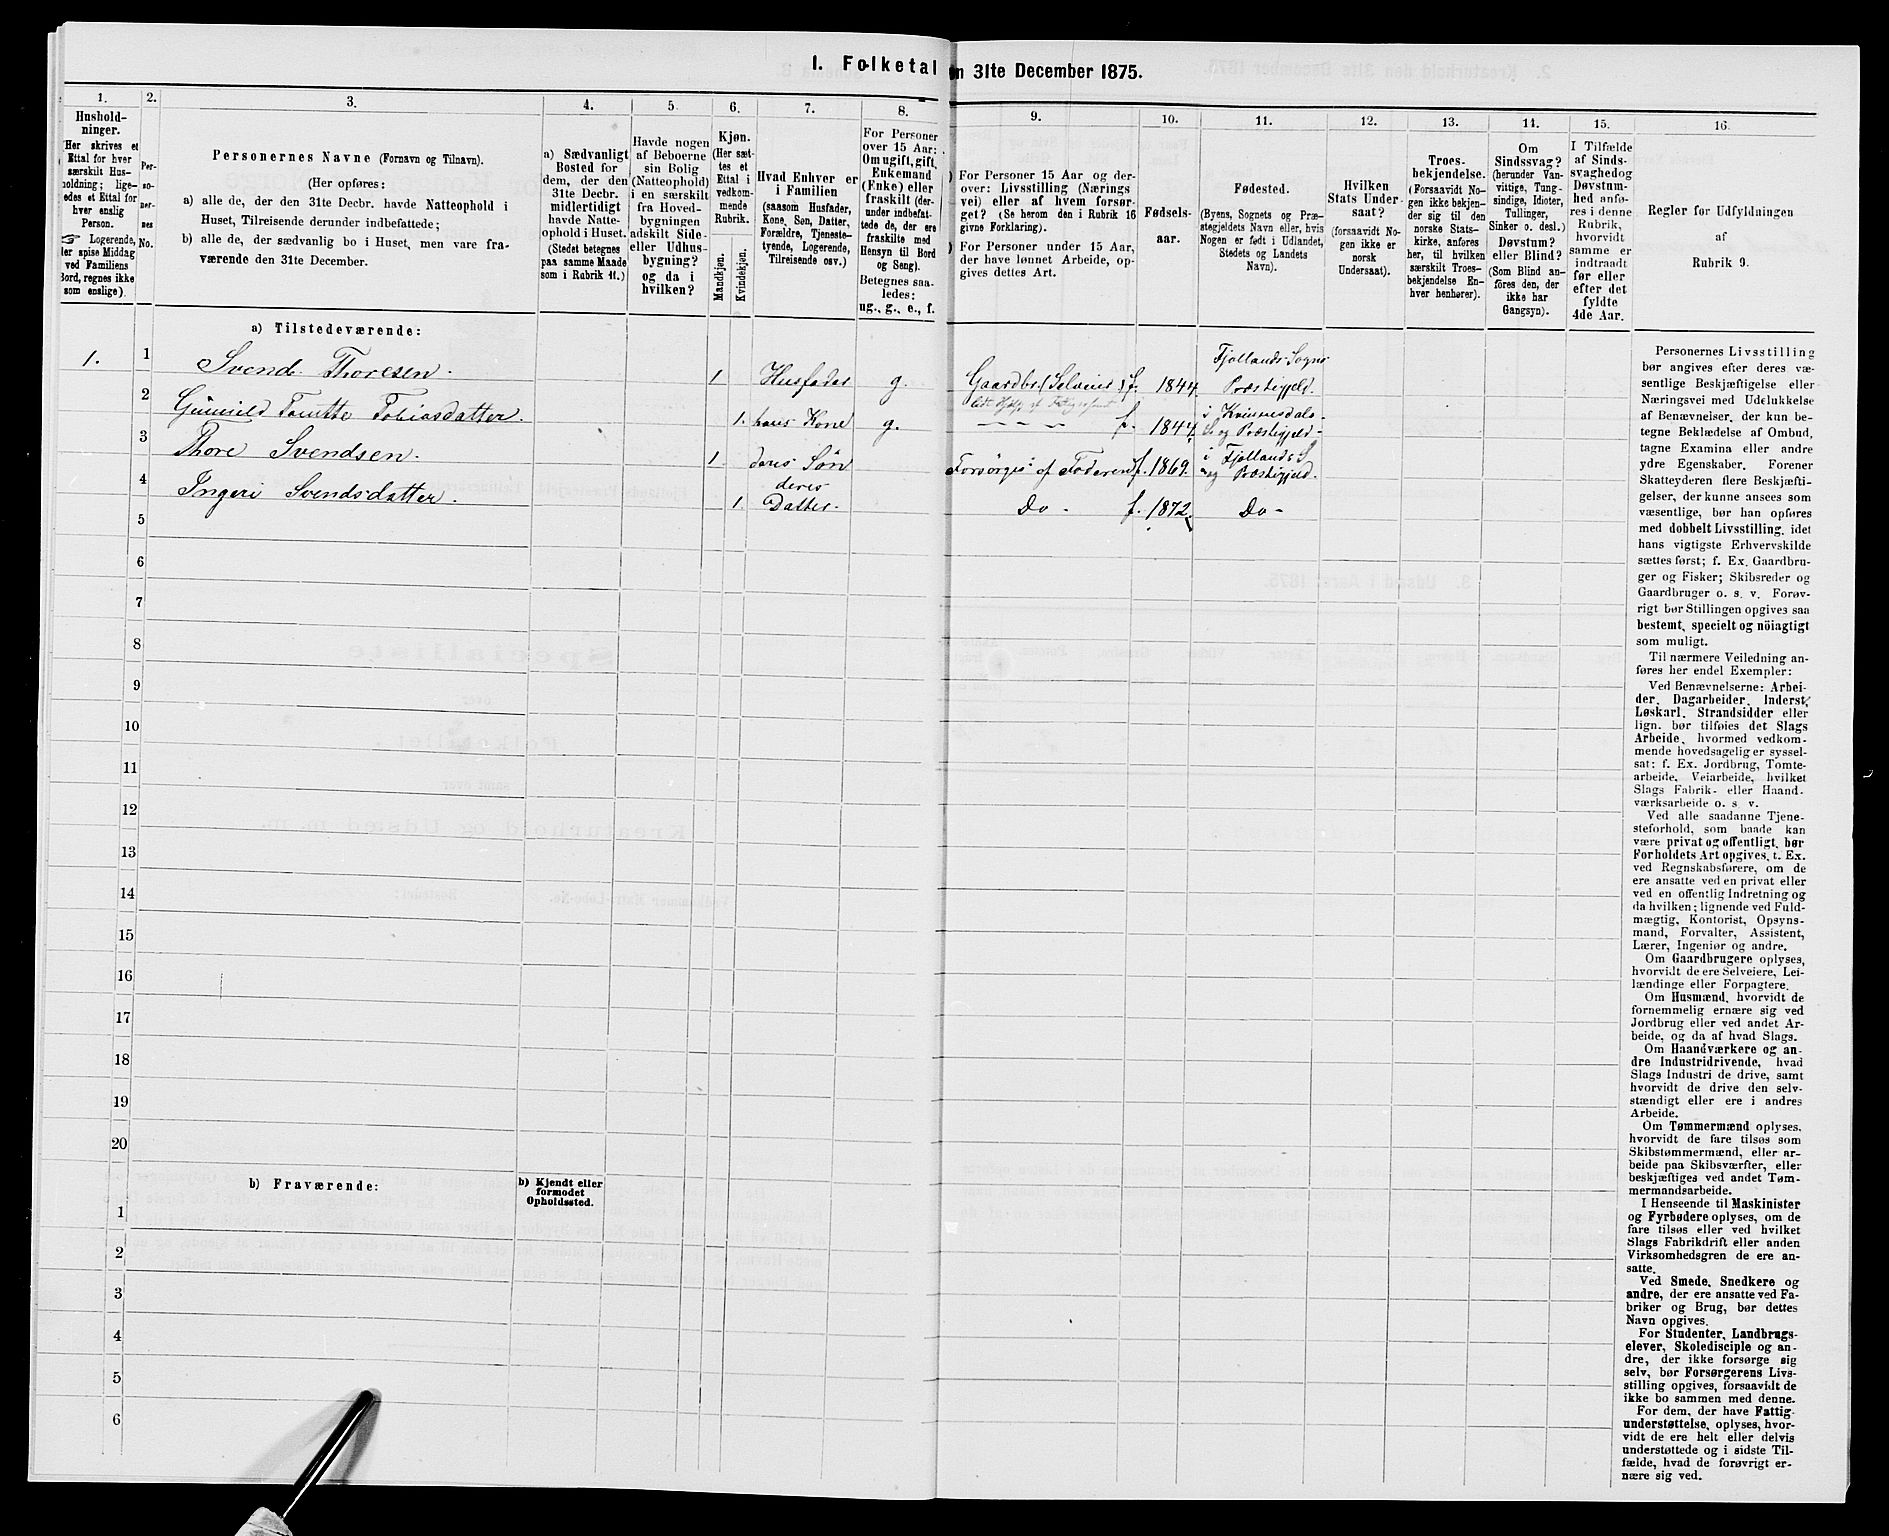 1. Folketal
en 31te December 1875.
1.
Hushold-
ninger.
(Her skrives et
Ettal for hver
særskilt Hus-
holdning; lige-
edes et Ettal for
hver enslig
Person.
☞ Logerende,
der spise Middag
ved Familiens
Bord, regnes ikke
som enslige).
2.
Per-
so-
ner-
nes
No.
3.
Personernes Navne (Fornavn og Tilnavn).
(Her opføres:
a) alle de, der den 31te Decbr. havde Natteophold i
Huset, Tilreisende derunder indbefattede;
b) alle de, der sædvanlig bo i Huset, men vare fra-
værende den 31te December.
4.
a) Sædvanligt
Bosted for
dem, der den
31te Decbr.
midlertidigt
havde Natte-
ophold i Huset.
(Stedet betegnes
paa samme Maade
som i Rubrik 11.)
5.
Havde nogen
af Beboerne
sin Bolig
(Natteophold)
i en særskilt
fra Hoved-
bygningen
adskilt Side-
eller Udhus-
bygning?
og da i
hvilken?
6.
Kjøn.
(Her sæt-
tes et
Ettal i
vedkom-
mende
Rubrik.
Mandkjøn.
Kvindekjøn.
7.
Hvad Enhver er
i Familien
(saasom Husfader,
Kone, Søn, Datter,
Forældre, Tjeneste-
tyende, Logerende,
Tilreisende osv.)
8.
For Personer
over 15 Aar:
Om ugift, gift,
Enkemand
(Enke) eller
fraskilt (der-
under indbefat-
tede de, der ere
fraskilte med
Hensyn til Bord
og Seng).
Betegnes saa-
ledes:
ug., g., e., f.
9.
) For Personer 15 Aar og der-
over: Livsstilling (Nærings
vei) eller af hvem forsør-
get? (Se herom den i Rubrik 16
givne Forklaring).
) For Personer under 15 Aar,
der have lønnet Arbeide, op-
gives dettes Art.
10.
Fødsels-
aar.
11.
Fødested.
(Byens, Sognets og Præ-
stegjeldets Navn eller, hvis
Nogen er født i Udlandet,
Stedets og Landets
Navn).
12.
Hvilken
Stats Under-
saat?
(forsaavidt No-
gen ikke er
norsk
Undersaat).
13.
Troes-
bekjendelse.
(Forsaavidt No-
gen ikke bekjen-
der sig til den
norske Stats-
kirke, anføres
her, til hvilken
særskilt Troes-
bekjendelse En-
hver henhører).
14.
Om
Sindssvag?
(herunder Van-
vittige, Tung-
sindige, Idioter,
Tullinger,
Sinker o. desl.)
Døvstum?
eller Blind?
(Som Blind an-
føres den, der
ikke har
Gangsyn).
15.
I Tilfælde
af Sinds-
svaghedog
Døvstum-
hed anfø-
res i denne
Rubrik,
hvorvidt
samme er
indtraadt
før eller
efter det
fyldte
4de Aar.
16.
Regler for Udfyldningen
af
Rubrik 9.
a) Tilstedeværende:
1. 1 Svend Thoresen. 1 Husfader g. Gaardbr. (Selveier) f. 1844 Fjotlands Sogn
Præstigjeld.
2 Gunnild Tomitte Tobiasdatter. 1. hans Kone g. f. 1844 i Kvinesdals
S. og Præstigjeld
3 Thore Svendsen. 1 deres Søn Forsørges af Faderen f. 1869. i Fjotlands S
og Præstigjeld.
4 Ingeri Svendsdatter. 1. deres
Datter. Do - f. 1872 Do -
5
6
7
8
9
10
11
12
13
14
15
16
17
18
19
20
b) Fraværende:
b) Kjendt eller
formodet
Opholdssted.
1
2
3
4
5
6
Personernes Livsstilling
bør angives efter deres væ-
sentlige Beskjæftigelse eller
Næringsvei med Udelukkelse
af Benævnelser, der kun be-
tegne Beklædelse af Ombud,
tagne Examina eller andre
ydre Egenskaber. Forener
Skatteyderen flere Beskjæfti-
gelser, der kunne ansees som
væsentlige, bør han opføres
med dobbelt Livsstilling, idet
hans vigtigste Erhvervskilde
sættes først; f. Ex. Gaardbru-
ger og Fisker; Skibsreder og
Gaardbruger o. s. v. Forøv-
rigt bør Stillingen opgives saa
bestemt, specielt og nöiagtigt
som muligt.
Til nærmere Veiledning an-
føres her endel Exempler:
Ved Benævnelserne: Arbei-
der, Dagarbeider, Inderst,
Løskarl, Strandsidder eller
lign. bør tilføies det Slags
Arbeide, hvormed vedkom-
mende hovedsagelig er syssel-
sat; f. Ex. Jordbrug, Tomte-
arbeide, Veiarbeide, hvilket
Slags Fabrik- eller Haand-
værksarbeide o. s. v.
Ved alle saadanne Tjene-
steforhold, som baade kan
være privat og offentligt, bør
Forholdets Art opgives, t. Ex.
ved Regnskabsførere, om de
ere ansatte ved en privat eller
ved en offentlig Indretning og
da hvilken; lignende ved Fuld-
mægtig, Kontorist, Opsyns-
mand, Forvalter, Assistent,
Lærer, Ingeniør og andre.
Om Gaardbrugere oplyses,
hvorvidt de ere Selveiere, Lei-
lændinge eller Forpagtere.
Om Husmænd, hvorvidt de
fornemmelig ernære sig ved
Jordbrug eller ved andet Ar-
beide, og da af hvad Slags.
Om Haandværkere og an-
dre Industridrivende, hvad
Slags Industri de drive, samt
hvorvidt de drive den selv-
stændigt eller ere i andres
Arbeide.
Om Tømmermænd oplyses,
hvorvidt de fare tilsøs som
Skibstømmermænd, eller ar-
beide paa Skibsværfter, eller
beskjæftiges ved andet Tøm-
mermandsarbeide.
I Henseende til Maskinister
og Fyrbødere oplyses, om de
fare tilsøs eller ved hvilket
Slags Fabrikdrift eller anden
Virksomhedsgren de ere an-
satte.
Ved Smede, Snedkere og
andre, der ere ansatte ved Fa-
briker og Brug, bør dettes
Navn opgives.
For Studenter, Landbrugs-
elever, Skoledisciple og an-
dre, der ikke forsørge sig
selv, bør Forsørgerens Livs-
stilling opgives, forsaavidt de
ikke bo sammen med denne.
For dem, der have Fattig-
understøttelse, oplyses, hvor-
vidt de ere helt eller delvis
understøttede og i sidste Til-
fælde, hvad de forøvrigt er-
nære sig ved.